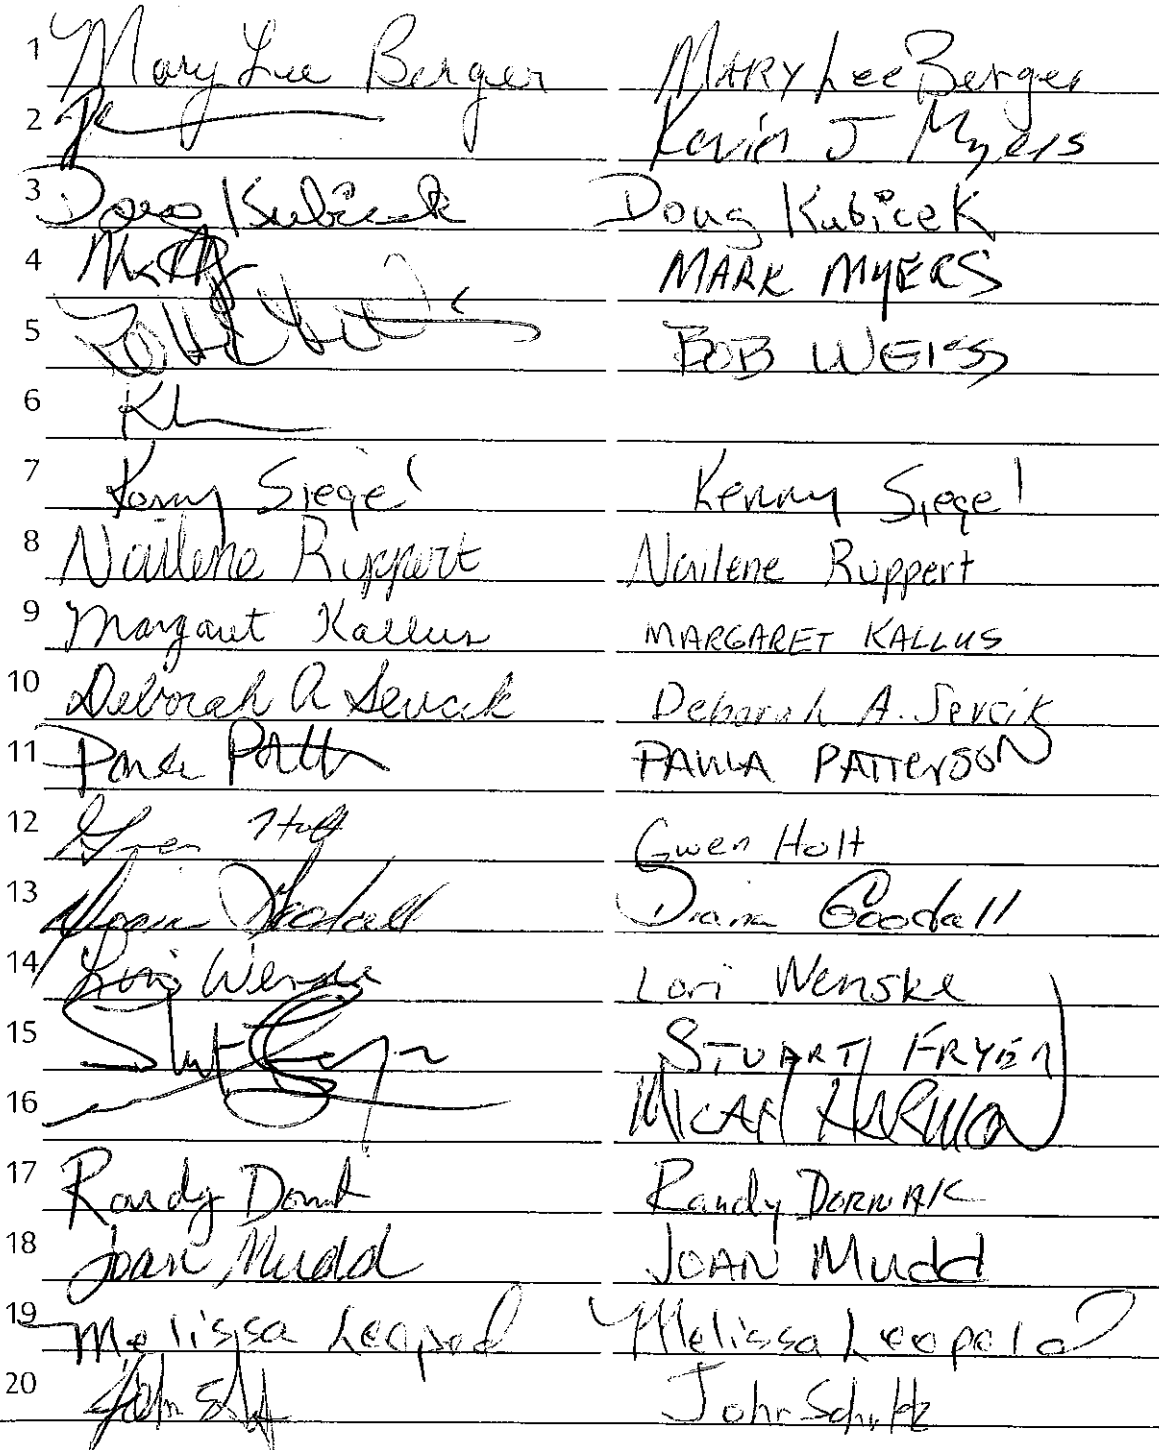 1 Mary Lee Berger MARY Lee Berger
2 Kevin J Myers
3 Doug Kubicek Doug Kubicek
4 MARK MYERS
5 BOB WEISS
6
7 Kenny Siegel Kenny Siegel
8 Nailene Ruppert Nailene Ruppert
9 Margaret Kallus MARGARET KALLUS
10 Deborah A Sevcik Deborah A. Sevcik
11 PAULA PATTERSON
12 Gwen Holt Gwen Holt
13 Goodall Diana Goodall
14 Lori Wenske Lori Wenske
15 STUART FRYER
16 MICAH HARMON
17 Randy Randy DORNAK
18 Joan Mudd JOAN Mudd
19 Melissa Leopold Melissa Leopold
20 John John Schultz